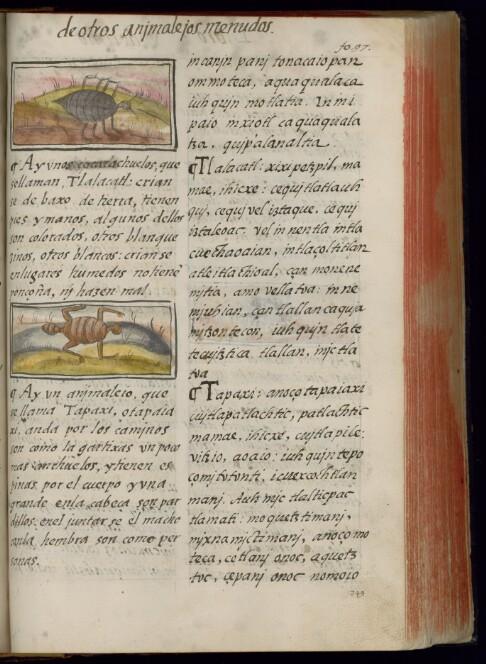 de otros animalejos menudos.
fo. 97.
¶ Ay vnos cocarachuelos, que
se llaman, Tlalacatl: crian
se de baxo de tierra, tienen
pies y manos, algunos dellos
son colorados, otros blanque
zinos, otros blancos: crianse
en lugares humedos no tiene
ponçoña, nj hazen mal.
¶ Ay vn anjmalejo, que
se llama Tapaxi, o tapaia
xi. anda por los caminos
son como lagartixas vn poco
mas anchuelos, y tienen es
pinas por el cuerpo y vna
grande en la cabeça son par
dillos: en el juntar se el macho
con la hembra son como per
sonas.
in canjn panj tonacaio pan
ommoteca, aquaqualaca
iuhqujn motlatia. In mi
paio inxiotl caquaquala
tza, qujpalanaltia.
¶ Tlalacatl: xixipetzpil, ma
mae, ihicxe: cequi tlatlauh
quj, cequj vel iztaque, cequj
iztaleoac. vel in nentla intla
cuechaoaian, intlaçoltitlan
atle itlatlacoal, çan monene
mjtia, amo vellatva: in ne
mjuhian, çan tlallan caquja
mjtzontecon, iuhqujn tlate
tecujtztica tlallan, injc tla
tva
¶ Tapaxi: anoço tapaiaxi
cujtlapatlachtic, patlachtic
mamae, ihicxe, cujtlapile:
vitzio, aoaio: iuhqujn tepo
comjtvtontj, icuexcochtlan
manj. Auh injc tlalticpac
tlamati: moquetztimanj,
mjxnamjctimanj, anoço mo
teca, cetlanj onoc, aquetz
tvc, çepanj onoc nomoio
249